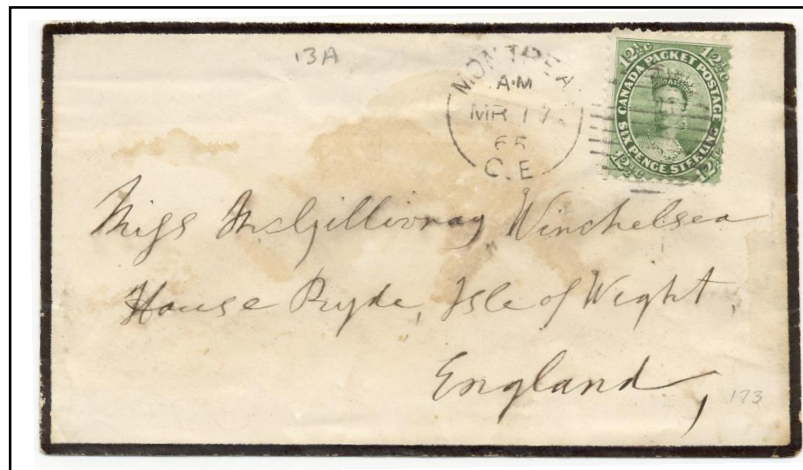 13A
MONTREA
A·M
MR 17
65
C.E
12½c 12½c
CANADA PACKET POSTAGE
SIX PENCE STERLING.
12½c 12½c
Miss McGillivray Winchelsea
House Ryde, Isle of Wight,
England,
173